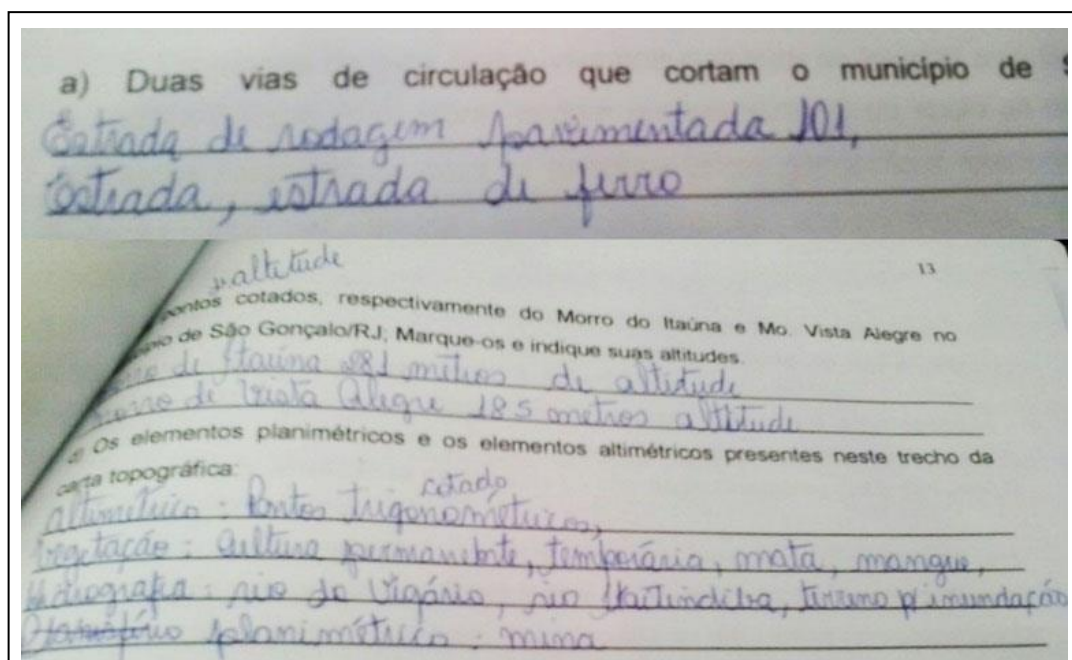 a) Duas vias de circulação que cortam o município de S
Estrada de rodagem pavimentada 101,
Estrada, estrada de ferro
altitude
13
pontos cotados, respectivamente do Morro do Itaúna e Mo. Vista Alegre no
de São Gonçalo/RJ; Marque-os e indique suas altitudes.
de Itaúna 281 metros de altitude
de Vista Alegre 185 metros altitude
Os elementos planimétricos e os elementos altimétricos presentes neste trecho da
carta topográfica:
cotado
altimétrico: Pontos trigonométricos,
Vegetação: Cultura permanente, temporária, mata, mangue,
Hidrografia: rio do Vigário, rio Itaitindiba, terreno p/ inundação
planimétrico: mina